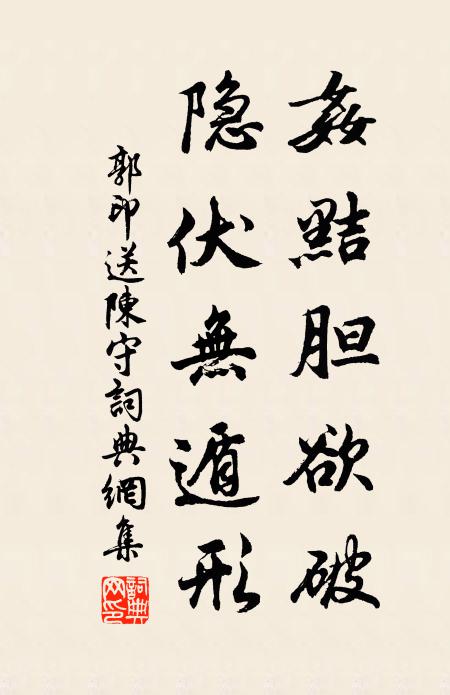 姦黠胆欲破
隐伏無遁形
郭印送陳守詞典網集
詞典网印